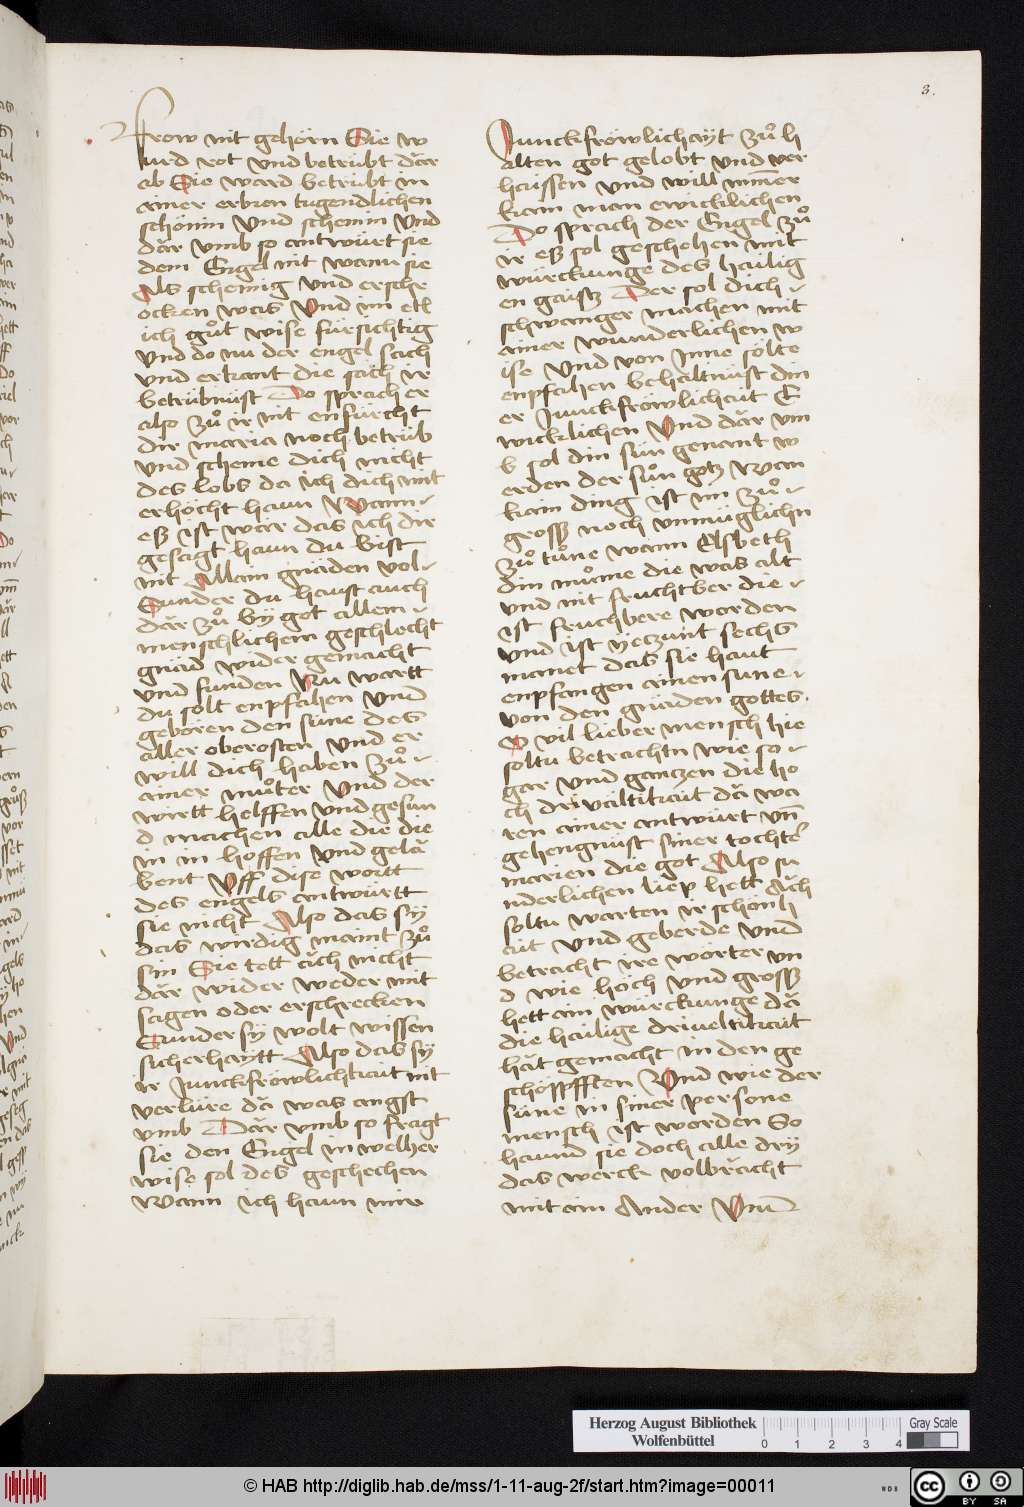 3.
frow nit gehörn Sie w
urd rot vnd betrübt dăr
ab Sie ward betrübt in
ainer erbren tugendlichen
schönin Vnd schemin Vnd
dăr vmb so antwürt sie
dem Engel nit wann sie
Als schemig Vnd erschr
ocken was Vnd im etl
ich gůt wise fürsichtig
Vnd do nu der engel sach
Vnd erkant die sach ir
betrübnüst Do sprach er
also zů ir nit enfürcht
dir maria noch betrüb
Vnd scheme dich nicht
des lobs da ich dich mit
erhöcht haun Wann
eß ist wăr das ich dir
gesagt haun du bist
nit Allain gnăden vol
Sunder du haust auch
dăr zů by got allem
menschlichem geschlecht
gnăd wider gemacht
Vnd funden Nu wartt
du solt enpfahen Vnd
geboren den süne des
aller obersten Vnd er
will dich haben zů
ainer můter Vnd der
wirtt helffen Vnd gesun
d machen alle die die
in in hoffen Vnd gelă
bent Vff dise wortt
des engels antwürtt
sie nicht Also das sÿ
das wirdig maint zů
sin Sie tett ăch nicht
dăr wider weder mit
sagen oder erschrecken
Sunder sÿ wolt wissen
sicherhaÿtt Also das sÿ
ir Junckfröwlichkait nit
verlüre dă was angst
vmb Dăr vmb so fragt
sie den Engel in welher
wise sol des geschechen
Wann ich haun mire
Junckfröwlichaÿt zů h
alten got gelobt vnd ver
haissen vnd will nim̄er
kain man ewicklichen
Do sprach der Engel zů
ir eß sol geschehen mit
würckunge des hailig
en gaistz Der sol dich
schwanger machen mit
ainer wunderlichen w
ise Vnd von Inne sölte
enpfahen behaltnüst din
er Junckfröwlichait E
wicklichen Vnd dăr vm
b sol din sun genant w
erden der sůn gotz Wan
kain ding ist im zů
grosß noch vnmüglichn
zů tůne wann Elsbeth
din můme die was alt
vnd nit fruchtber die
ist fruchbere worden
Vnd ist ÿetzunt sechs
manet das sie haut
enpfangen ainen sune
von den gnăden gottes.
O vil lieber mensch hie
soltu betrachtn wie so
gar Vnd gantzen die ho
ch driuältikait dă wa
ren ainer antwürt vn̄
gehengnüst siner tochter
marien die got Also su
nderlichen liep hett Ăch
soltu warten ir schönh
ait vnd geberde vnd
betracht ire wörter vn
d wie höch Vnd grosß
hett ain würckunge dă
die hailige driueltikait
hăt gemacht in den ge
schöpfften Vnd wie der
süne in siner persone
mensch ist worden So
haund sie doch alle drÿ
das werck volbrăcht
mit ain Ander Vnd
Herzog August Bibliothek
Wolfenbüttel
0 1 2 3 4
Gray Scale
© HAB http://diglib.hab.de/mss/1-11-aug-2f/start.htm?image=00011
WDB
cc BY SA